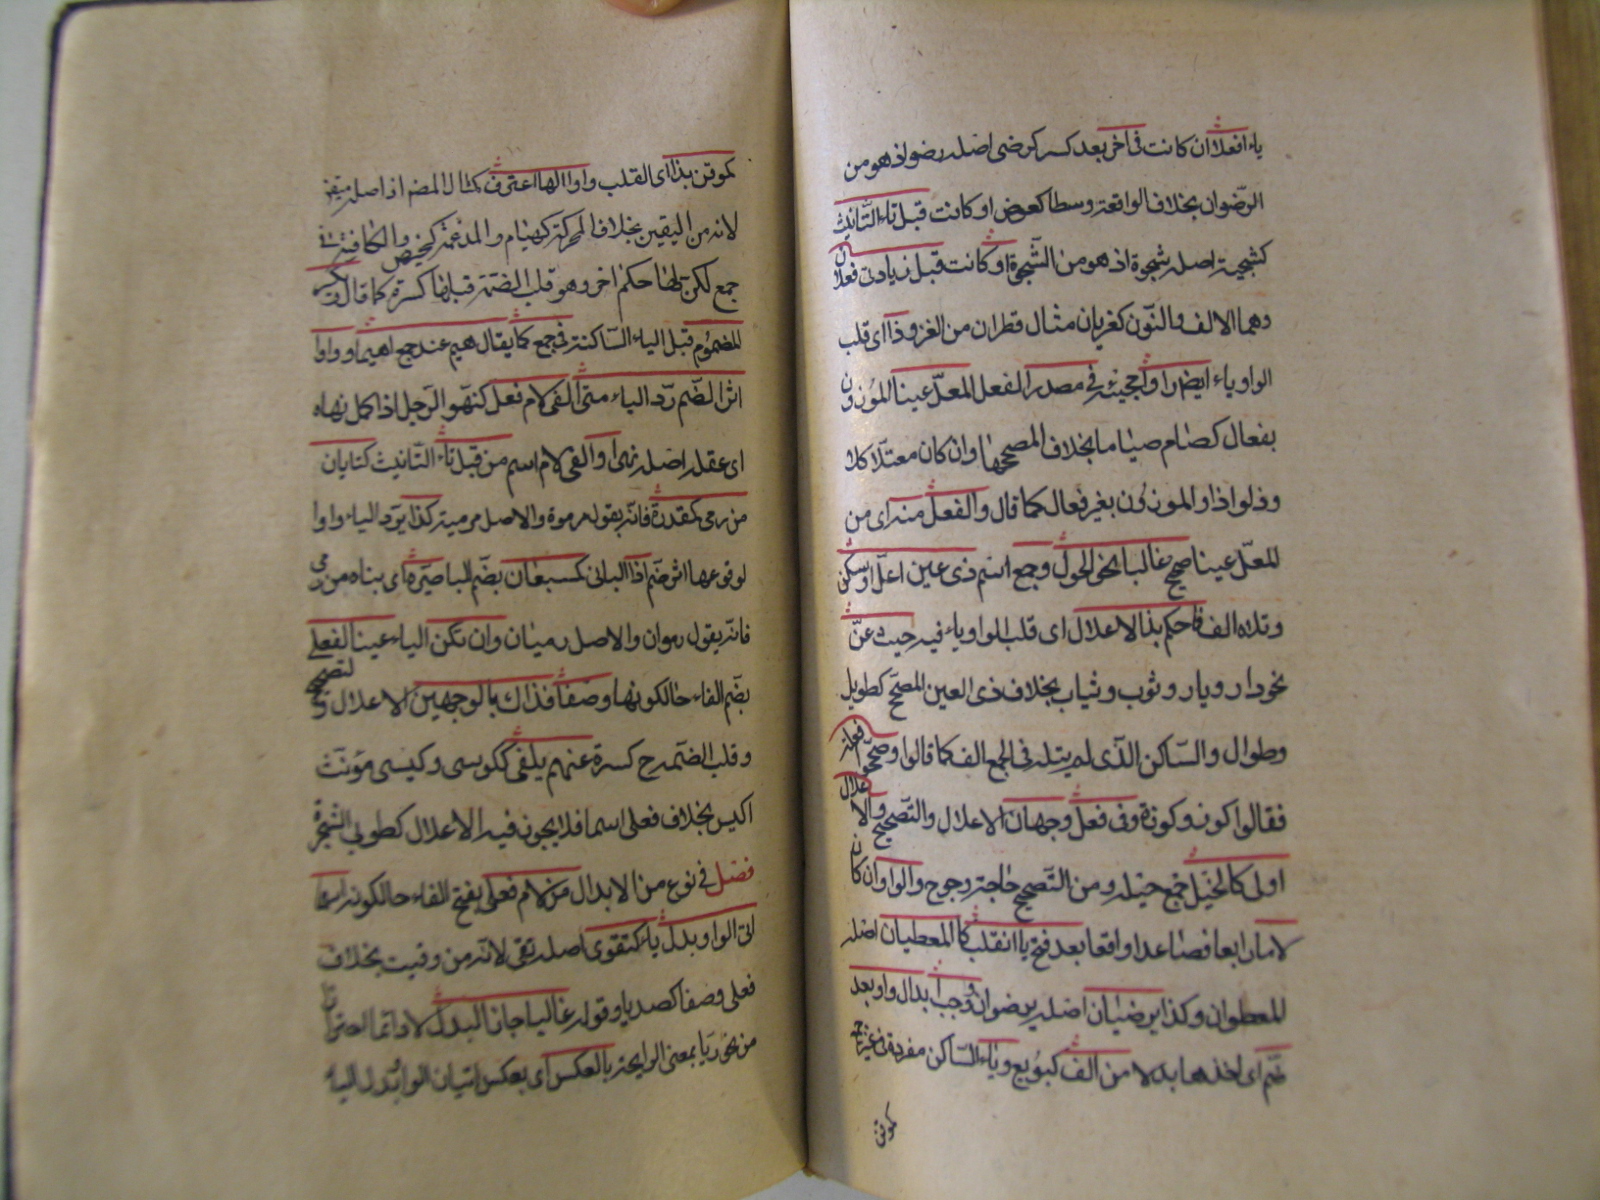 ياء افعلا ان كانت في آخر بعد كسر كرضي اصله رضو اذ هو من
الرّضوان بخلاف الواقعة وسطا كعوض او كانت قبل تاء التّأنيث
كشجية اصله شجوة اذ هو من الشّجو او كانت قبل زيادتي فعلان
وهما الالف والنّون كغزيان مثال قطران من الغزو ذا اي قلب
الواو ياء ايضا رأوا مجيئه في مصدر الفعل المعلّ عينا الموزون
بفعال كصام صياما بخلاف المصحّحها وان كان معتلّا كلاوذ
لواذا والموزون بغير فعال كما قال والفعل منه اي من
المعلّ عينا صحيح غالبا نحو الحول وجمع اسم ذي عين اعلّ او سكن
وتلاه الف فاحكم بذا الاعلال اي قلب الواو ياء فيه حيث عنّ
نحو دار وديار وثوب وثياب بخلاف ذي العين المصحّح كطويل
وطوال والسّاكن الذّي لم يتله في الجمع الف كما قالوا وصحّحوا فعلة
فقالوا كوز وكوزة وفي فعل وجهان الاعلال والتّصحيح والاعلال
اولى كالحيل جمع حيلة ومن التّصحيح حاجة وحوج والواو ان كان
لاما رابعا فصاعدا واقعا بعد فتح يا انقلب كالمعطيان اصله
المعطوان وكذا يرضيان اصله يرضوان ووجب ابدال واو بعد
ضّم اي اخذها بدلا من الف كبويع وياء السّاكن مفردة في غير جمع
كموقن
كموقن بذا اي القلب واوا لها اعترف كمثال المصنّف اذ اصله ميقن
لانه من اليقين بخلاف المحركة كهيام والمدغمة كحيض والكافية في
جمع لكن لها حكم آخر وهو قلب الضمّة قبلها كسرة كما قال ويكسر
المضموم قبل الياء السّاكنة في جمع كما يقال هيم عند جمع اهيما وواوا
اثر الضّم ردّ الياء متى الفي لام فعل كنهو الرّجل اذا كمل نهاه
اي عقله اصله نهي او الفي لام اسم من قبل تاء التّأنيث كتا بان
من رمى كمقدرة فانّه يقول مرموة والاصل مرمية كذا يردّ الياء واوا
لوقوعها اثر ضّم اذا الباني كسبعان بضّم البا صيّره اي بناه من رمى
فانّه يقول رموان والاصل رميان وان تكن الياء عينا لفعلى
بضّم الفاء حالكونها وصفا فذاك بالوجهين الاعلال والتصحيح
وقلب الضّمة ح كسرة عنهم يلفى ككوسى وكيسى مؤنّث
اكيس بخلاف فعلى اسما فلا يجوز فيه الا الاعلال كطوبى لشجرة
فصل في نوع من الابدال من لام فعلى بفتح الفاء حالكونه اسما
اتى الواو بدل ياء كتقوى اصله تقيا لانّه من وقيت بخلاف
فعلى وصفا كصديا وقوله غالبا جا ذا البدل لا دائما احتراز
من نحو ريّا بمعنى الرايحة بالعكس اي بعكس اتيان الواو بدل الياء